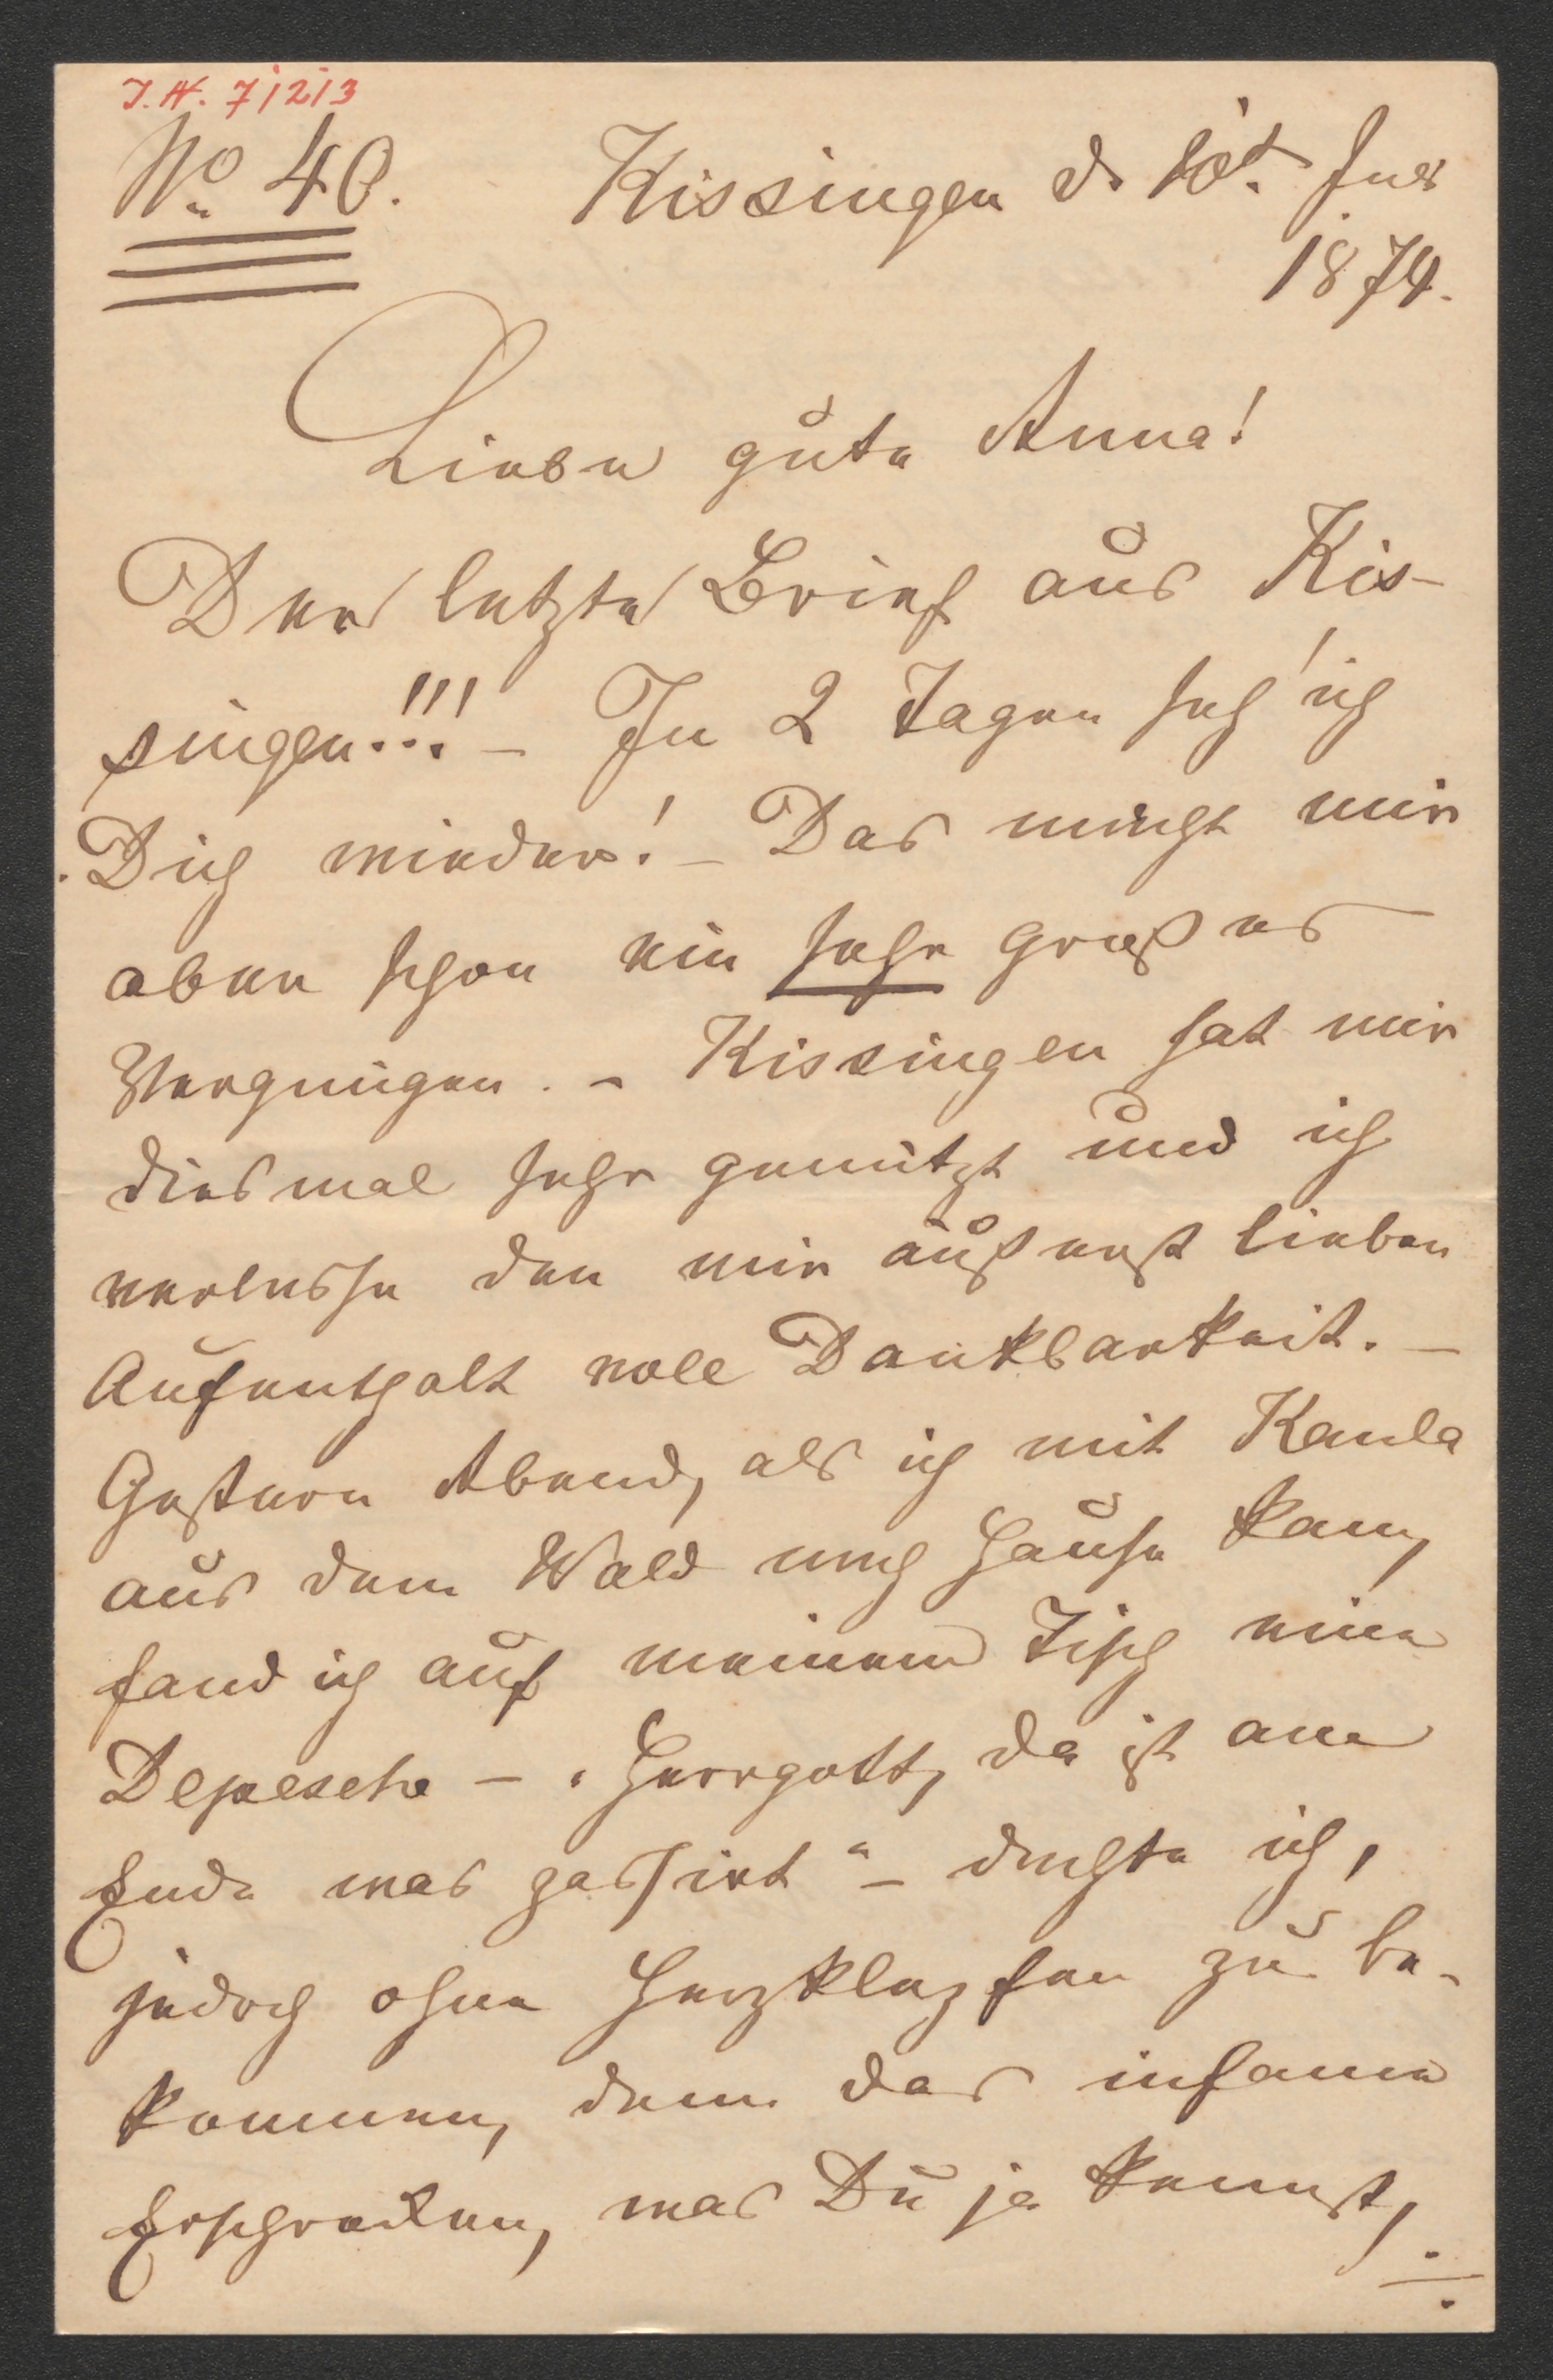 I.N. 71213
No 40. Kissingen d. 10t. Juli
1874.
Liebe gute Anna!
Der letzte Brief aus Kis-
singen!!! – In 2 Tagen seh' ich
Dich wieder! – Das macht mir
aber schon ein sehr großes
Vergnügen. – Kissingen hat mir
diesmal sehr genützt und ich
verlasse den mir äußerst lieben
Aufenthalt voll Dankbarkeit. –
Gestern Abend, als ich mit Kaula
aus dem Wald nach Hause kam,
fand ich auf meinem Tisch eine
Depesche – „Herrgott, da ist am
Ende was passirt“ – dachte ich,
jedoch ohne Herzklopfen zu be-
kommen, denn das infame
Erschrecken, was Du ja kennst,
./.